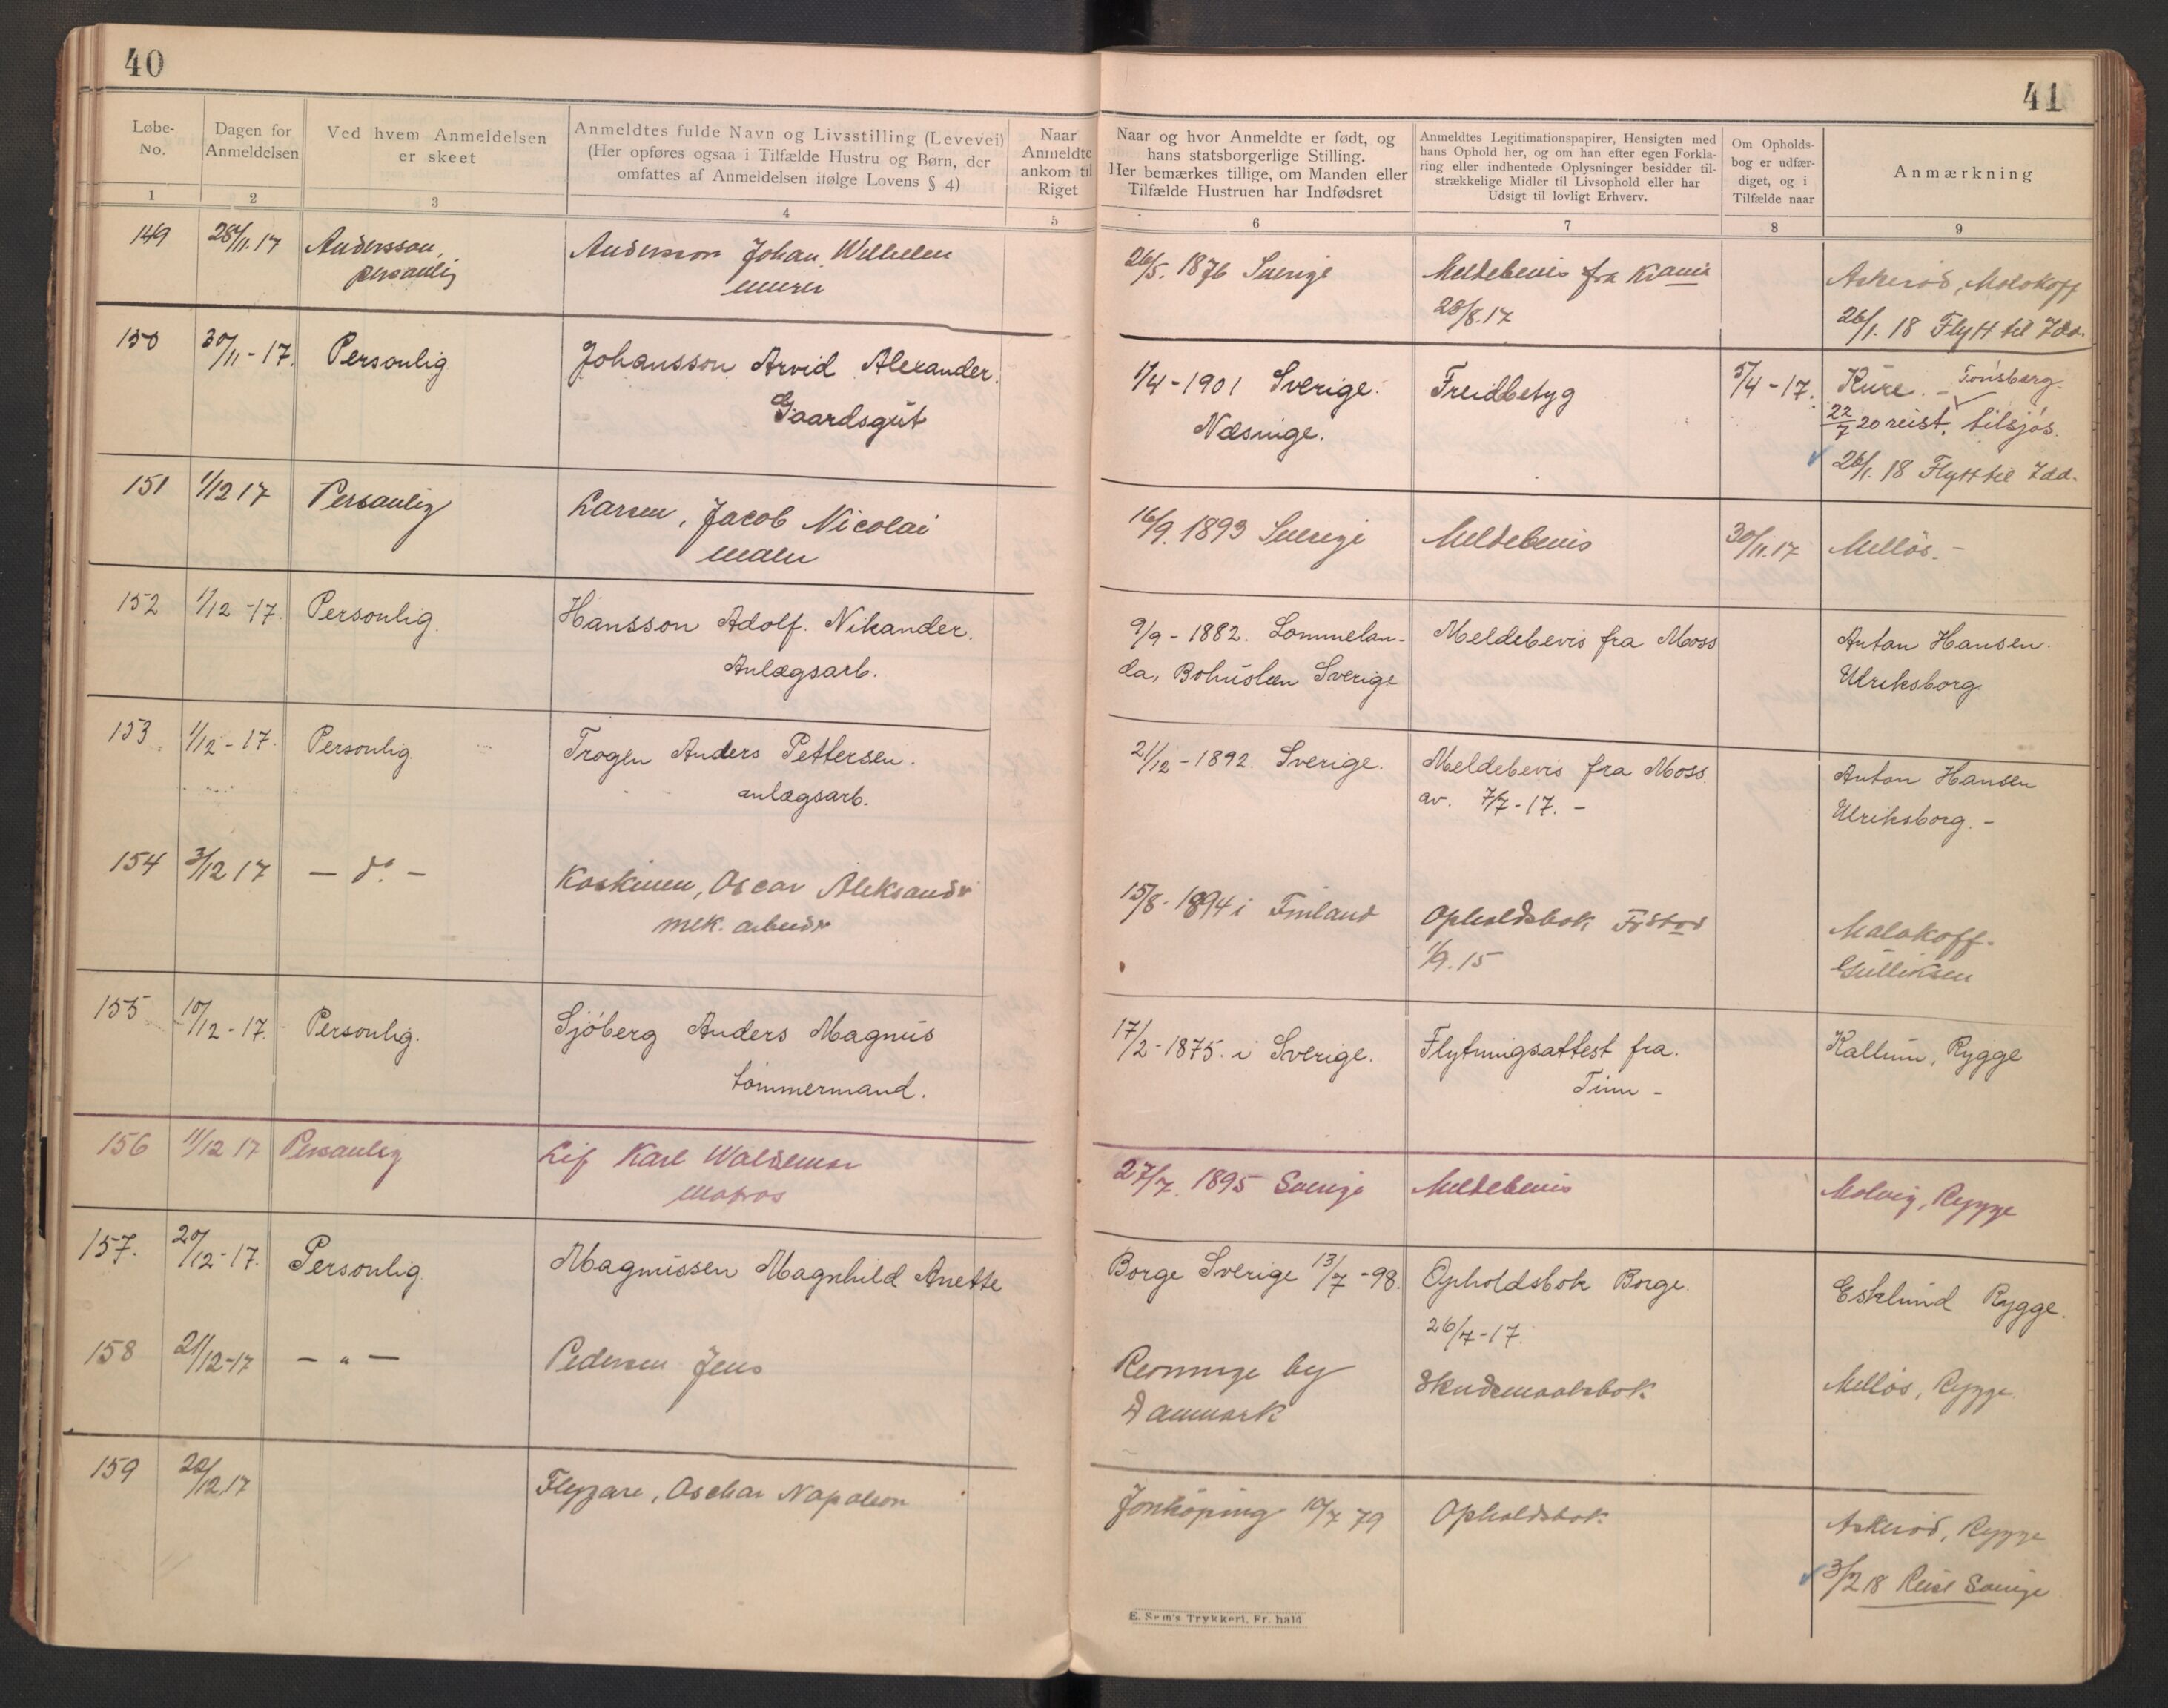 40
Løbe-No.
Dagen for Anmeldelsen
Ved hvem Anmeldelsen er skeet
Anmeldtes fulde Navn og Livsstilling (Levevei)
(Her opføres ogsaa i Tilfælde Hustru og Børn, der
omfattes af Anmeldelsen ifølge Lovens § 4)
Naar Anmeldte ankom til Riget
1 2 3 4 5
149 28/11.17 Andersson, Andersson Johan Wilhelm
personlig murer
150 30/11-17. Personlig Johansson Arvid Alexander.
Gaardsgut
151 1/12 17 Personlig Larsen, Jacob Nicolai
maler
152 1/12-17. Personlig. Hansson Adolf. Nikander.
Anlægsarb.
153 1/12-17. Personlig. Trogen Anders Pettersen.
anlægsarb.
154 3/12 17 — do — Koskinen, Oscar Aleksandr
mek. arbeidr
155 10/12-17. Personlig. Sjöberg Anders Magnus
tømmermand.
156 11/12 17 Personlig Lif Karl Waldemar
matros
157. 20/12-17. Personlig. Magnussen Magnhild Anette
158 21/12-17 — " — Pedersen Jens
159 22/12 17 Flygare, Oschar Napoleon
41
Naar og hvor Anmeldte er født, og
hans statsborgerlige Stilling.
Her bemærkes tillige, om Manden eller
Tilfælde Hustruen har Indfødsret
Anmeldtes Legitimationspapirer, Hensigten med
hans Ophold her, og om han efter egen Forkla-
ring eller indhentede Oplysninger besidder til-
strækkelige Midler til Livsophold eller har
Udsigt til lovligt Erhverv.
Om Opholds-
bog er udfær-
diget, og i
Tilfælde naar
Anmærkning
6 7 8 9
26/5. 1876 Sverige Meldebevis fra Kr.ania Askerød, Molokoff
28/8.17 26/1. 18 Flytt til Idd.
1/4-1901 Sverige. Freidbetyg 5/4-17. Kure. - Tønsberg.
Næsinge. 22/7 20 reist. tilsjøs.
26/1. 18 Flytt til Idd.
16/9. 1893 Sverige Meldebevis 30/11.17 Melløs. -
9/9-1882. Lommelan- Meldebevis fra Moss Anton Hansen.
da, Bohuslæn Sverige Ulriksborg
21/12-1892. Sverige. Meldebevis fra Moss. Anton Hansen
av. 7/7-17. - Ulriksborg. -
15/8-1894 i Finland Opholdsbok Frstad Malakoff.
1/9.15 Gulliksen
17/2-1875. i Sverige. Flytningsattest fra. Kallum, Rygge
Tinn -
27/7. 1895 Sverige Meldebevis Molvig, Rygge
Borge Sverige 13/7-98. Opholdsbok Borge. Eskelund Rygge.
26/7-17.
by Skudsmaalsbok Melløs, Rygge.
Danmark
Jönköping 10/7 79 Opholdsbok Askerød, Rygge
3/2 18 Reist Sverige
E. Sem's Trykkeri, Fr.hald